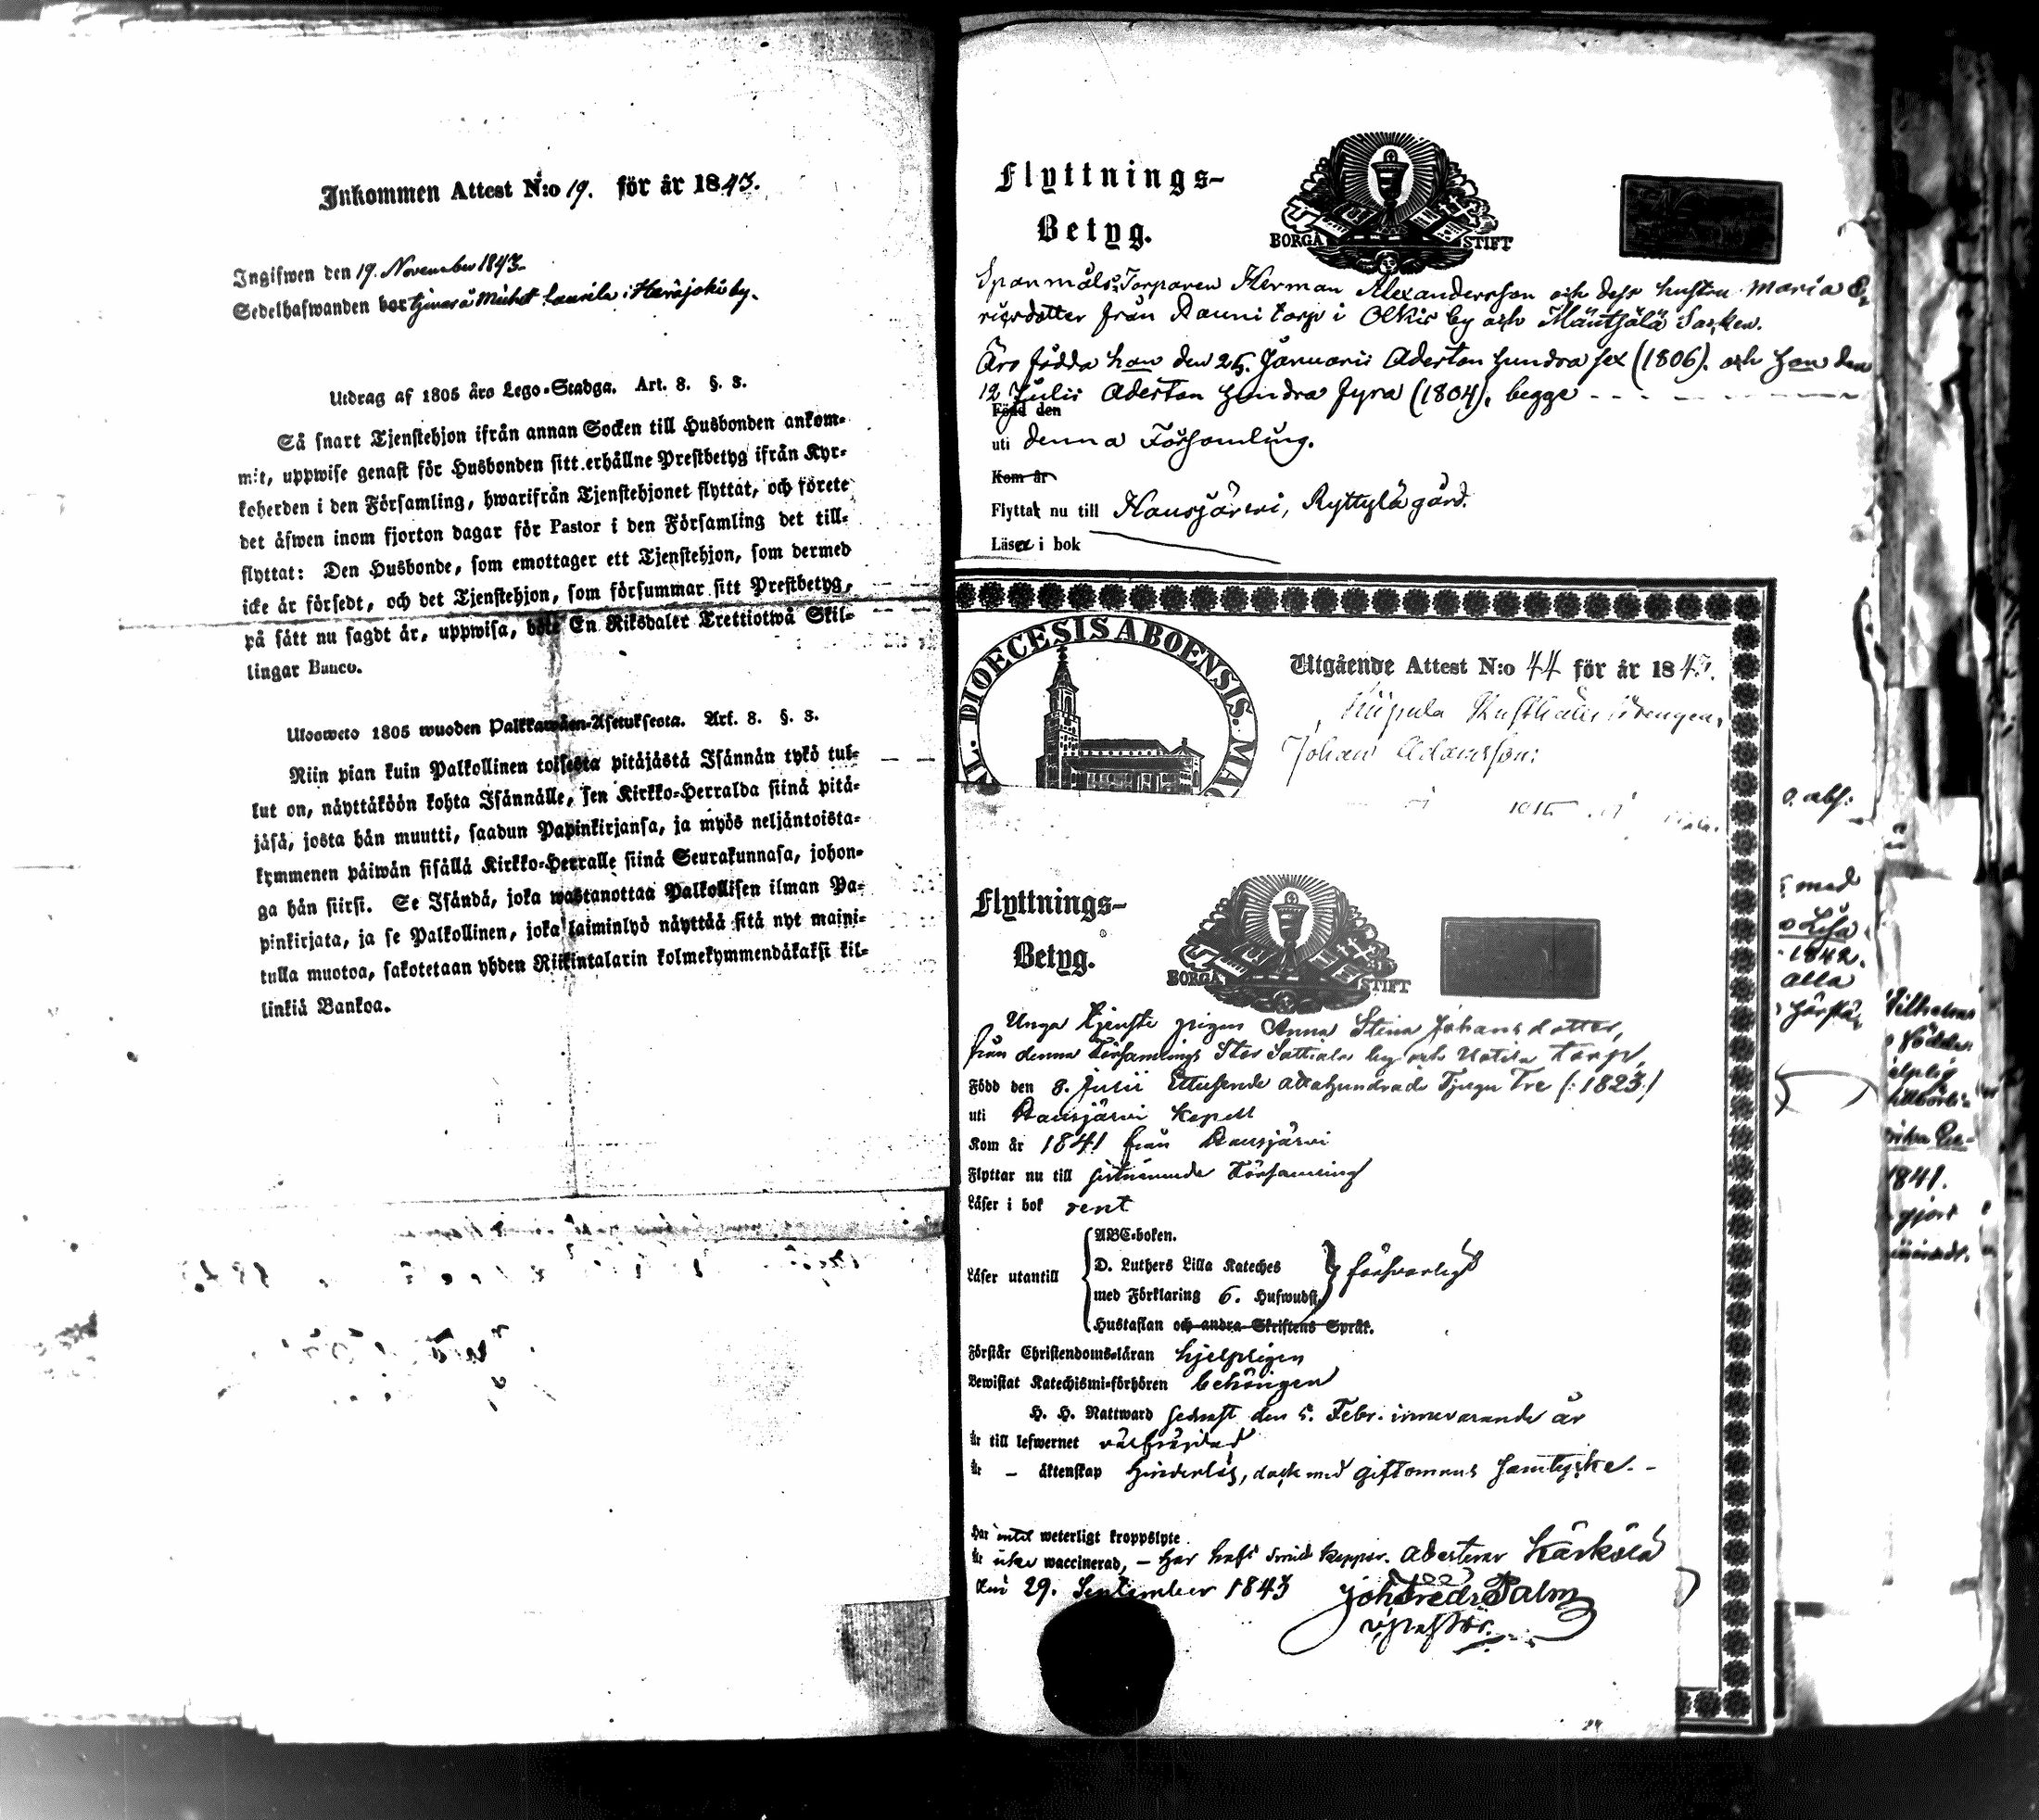 Inkommen Attest N:o 19. för år 1843.
Ingifwen den 19. November 1843.
Sedelhafwanden bor tjenar å Michel Laurila i Herajoki by.
Utdrag af 1805 års Lego-Stadga. Art. 8. §. 3.
Så snart Tjenstehjon ifrån annan Socken till Husbonden ankom-
mit, uppwise genast för Husbonden sitt erhållne Prestbetyg ifrån Kyr-
koherden i den Församling, hwarifrån Tjenstehjonet flyttat, och förete
det äfwen inom fjorton dagar för Pastor i den Församling det till-
flyttat: Den Husbonde, som emottager ett Tjenstehjon, som dermed
icke är försedt, och det Tjenstehjon, som försummar sitt Prestbetyg,
på sätt nu sagdt är, uppwisa, böte En Riksdaler Trettiotwå Skil-
lingar Banco.
Ulosweto 1805 wuoden Palkkawäen-Asetuksesta. Art. 8. §. 3.
Niin pian kuin Palkollinen toisesta pitäjästä Isännän tykö tul-
lut on, näyttäköön kohta Isännälle, sen Kirkko-Herralda siinä pitä-
jäsä, josta hän muutti, saadun Papinkirjansa, ja myös neljäntoista-
kymmenen päiwän sisällä Kirkko-Herralle siinä Seurakunnasa, johon-
ga hän siirsi. Se Isändä, joka wastanottaa Palkollisen ilman Pa-
pinkirjata, ja se Palkollinen, joka laiminlyö näyttää sitä nyt maini-
tulla muotoa, sakotetaan yhden Riikintalarin kolmekymmendäkaksi kil-
linkiä Bankoa.
Flyttnings-
Betyg.
BORGÅ STIFT
Spanmåls Torparen Herman Alexandersson och dess hustru Maria E-
ricsdotter från Rauni torp i Olkis by och Mäntsälä Socken.
Äro födda han den 25. Januarii Aderton hundra sex (1806). och hon den
12 Julii Aderton hundra fyra (1804), begge
Född den
uti denna Församling.
Kom år
Flyttat nu till Hausjärvi, Ryttylä gård.
Läser i bok
AL. DIOECESIS ABOENSIS. MA
Utgående Attest N:o 44 för år 1843.
Johan Adamsson:
Flyttnings-
Betyg.
BORGÅ STIFT
Unga tjenste pigan Anna Stina Johansdotter,
från denna Församlings Stor Sattiala by och Uotila torp,
Född den 8. Julii Ettusende åttahundrade Tjugu Tre (:1823:)
uti Hausjärvi Kapell
Kom år 1841 från Hausjärvi
Flyttar nu till sistnämnde Församling
Läser i bok rent
ABC-boken.
Läser utantill D. Luthers Lilla Kateches försvarligt
med Förklaring 6. Hufwudst.
Hustaflan och andra Skriftens Språk.
Förstår Christendoms-läran hjelpligen
Bewistat Katechismi-förhören behörigen
H. H. Nattward sednast den 5. Febr. innevarande år
är till lefwernet välfrejdad
är – äktenskap hinderlös, dock med giftomans samtycke. –
Har intet weterligt kroppslyte
är icke waccinerad, – har haft Smid koppor. Attesterar Kärkölä
den 29. September 1843 Joh Fredr Palm
v. pastor.
o. abs:
med
Lisa
1842.
alla
Wilhelms
födder
hjelplig
1841.
gjort